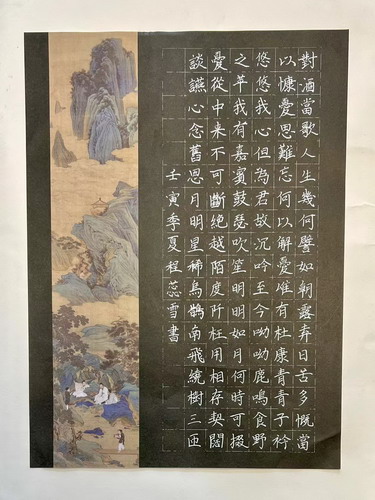 對酒當歌人生幾何譬如朝露弃日苦多慨當
以慷憂思難忘何以解憂惟有杜康青青子衿
悠悠我心但為君故沉吟至今呦呦鹿鳴食野
之苹我有嘉賓鼓瑟吹笙明明如月何時可掇
憂從中来不可斷絕越陌度阡枉用相存契闊
談讌心念舊恩月明星稀烏鵲南飛繞樹三匝
壬寅季夏程蕊雪書